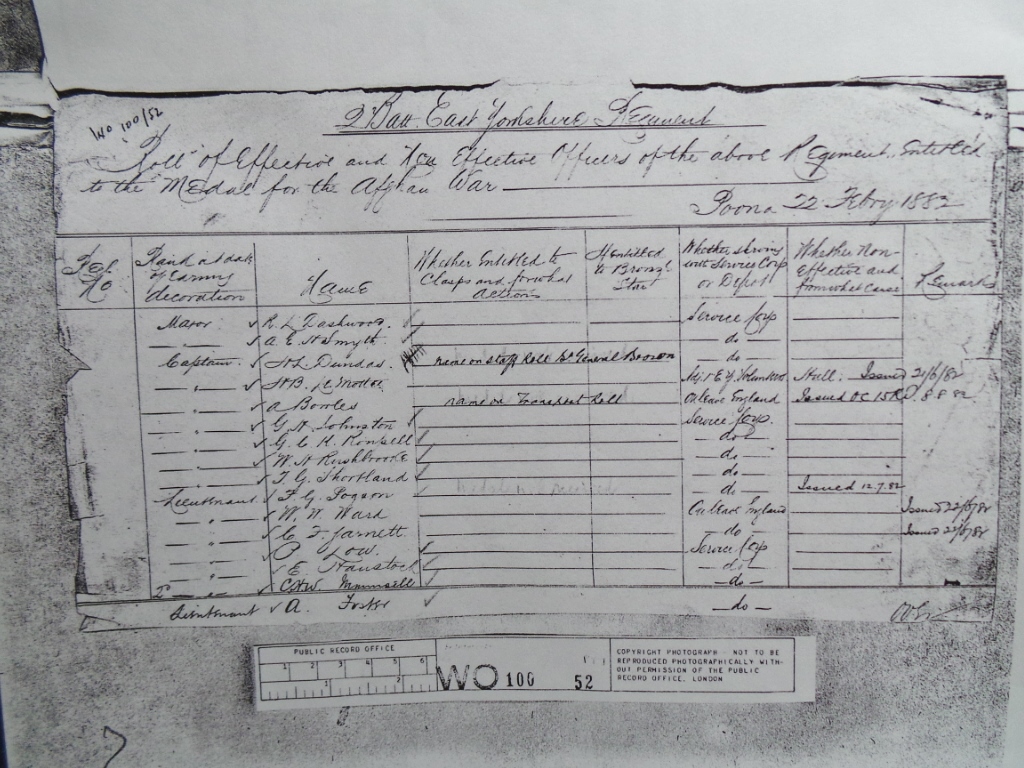 WO 100/52
2 Batt. East Yorkshire Regiment
Roll of Effective and Non Effective Officers of the above Regiment, Entitled
to the Medal for the Afghan War
Poona 22 Febry 1882
Regl No | Rank at date of earning decoration | Name | Whether Entitled to Clasps and for what Actions | If Entitled to Bronze Star | Whether serving with Service Corp or Depot | Whether Non-Effective and from what cause | Remarks
Major ✓ R. L. Dashwood. ✓ Service Corp
" ✓ A. E. H. Smyth. ✓ do
Captain ✓ Dundas name on Staff Roll General do
" ✓ Adjt E Y. Volunteers Hull. Issued
" ✓ A Bowles name on Transport Roll On leave England Issued 8.8.82
" ✓ G. Johnston ✓ Service Corp.
" ✓ G. C. H. ✓ do
" ✓ W. H Rushbrooke ✓ do
" ✓ T. G. ✓ do
Lieutenant ✓ F. G. Pogson ✓ do Issued 12.7.82
" ✓ W. W. Ward On leave England Issued
" ✓ C. F. Garnett do Issued
" ✓ Low. ✓ Service Corp
" ✓ E ✓ do
2nd " ✓ Maunsell ✓ do
Lieutenant ✓ A. Foster ✓ do
PUBLIC RECORD OFFICE
1 2 3 4 5 6
1 2
WO 100 52
COPYRIGHT PHOTOGRAPH - NOT TO BE
REPRODUCED PHOTOGRAPHICALLY WITH-
OUT PERMISSION OF THE PUBLIC
RECORD OFFICE, LONDON